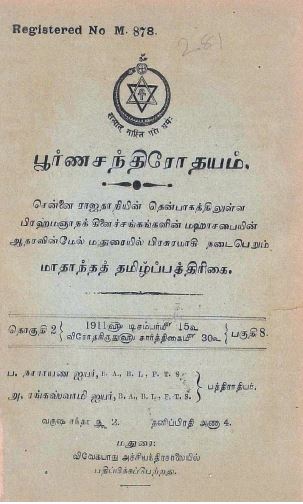 Registered No M. 878.
281
सत्यात् नास्ति परो धर्मः
பூர்ணசந்திரோதயம்.
சென்னை ராஜதானியின் தென்பாகத்திலுள்ள
பிரஹ்மஞான கிளைச்சங்கங்களின் மஹாசபையின்
ஆதரவின்மேல் மதுரையில் பிரசுரமாகி நடைபெறும்
மாதாந்தத் தமிழ்ப்பத்திரிகை.
தொகுதி 2 1911௵ டிசம்பர்௴ 15௳ பகுதி 8.
விரோதகிருது௵ கார்த்திகை௴ 30௳
ப. நாராயண ஐயர், B. A., B. L., F. T. S.
அ. ரங்கஸ்வாமி ஐயர், B. A., B. L., F. T. S. பத்திராதிபர்.
வருஷ சந்தா ரூ 2. தனிப்பிரதி அணா 4.
மதுரை:
விவேகபாநு அச்சியந்திரசாலையில்
பதிப்பிக்கப்பெற்றது.